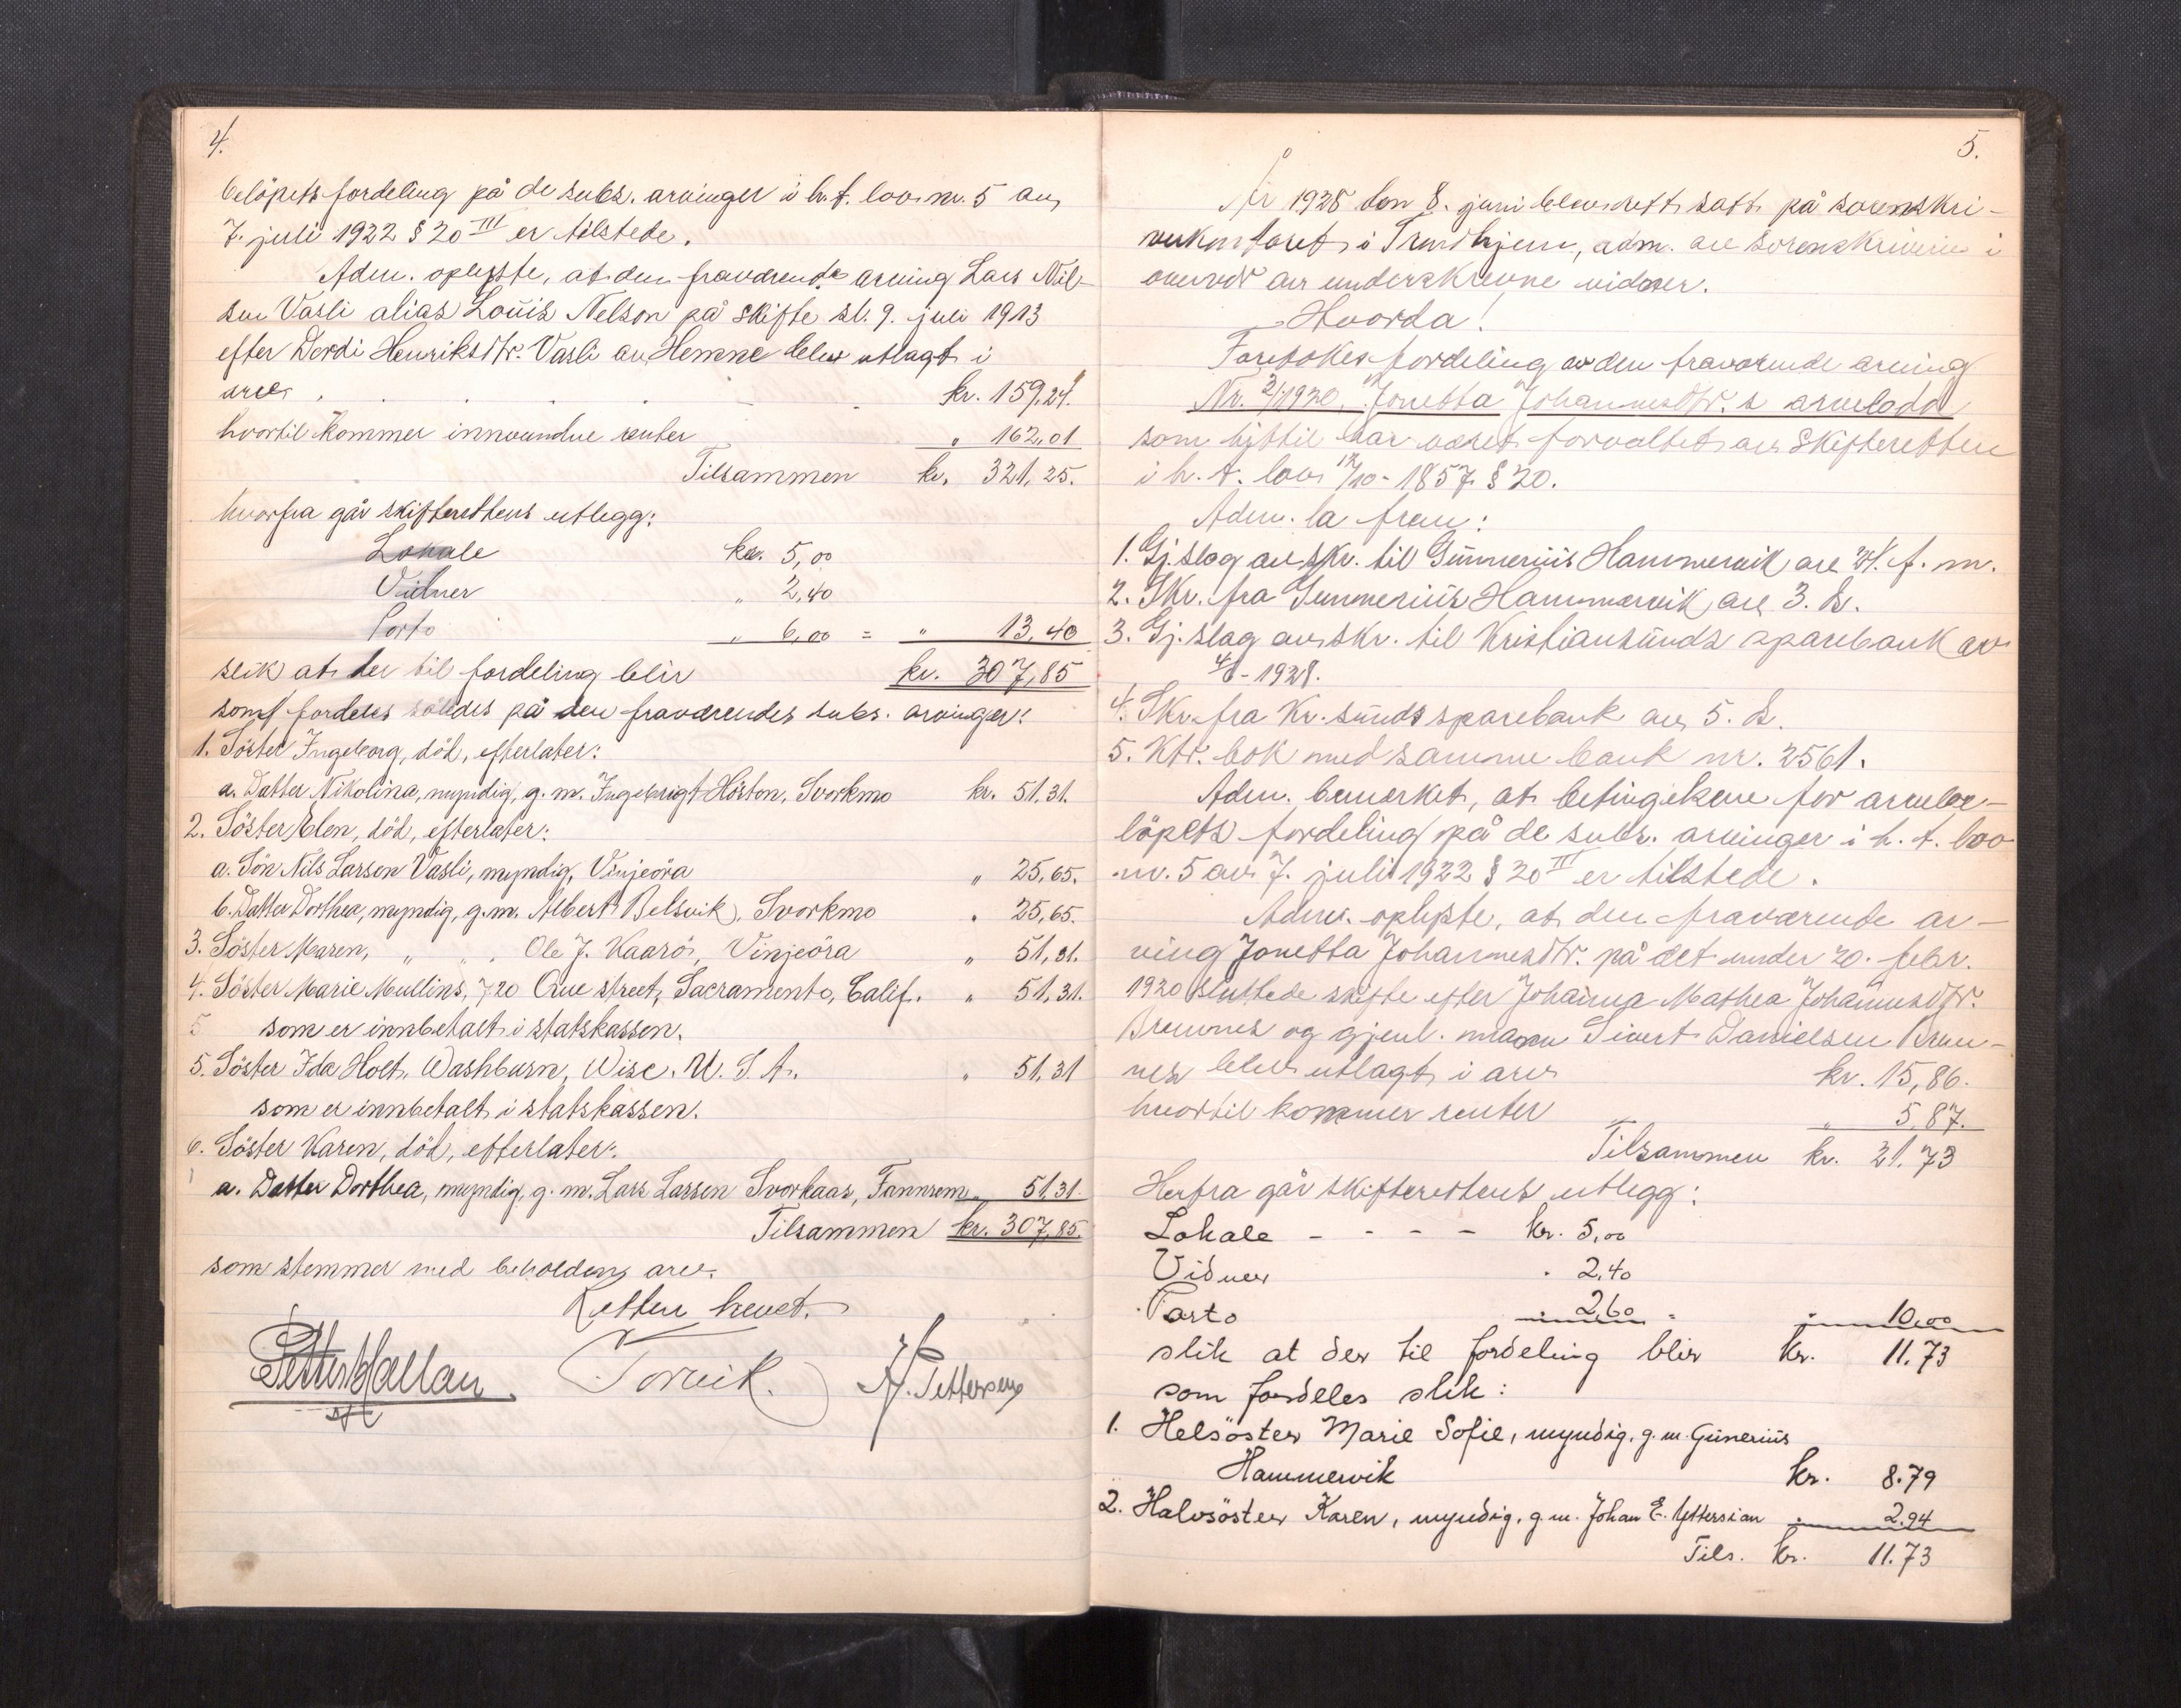 4.
belöpets fordeling på de subs. arvinger i h.t. lov nr. 5 av
7. juli 1922 § 20 III er tilstede.
Adm. oplyste, at den fraværende arving Lars Nil-
sen Vasli alias Louis Nelson på skifte sl. 9. juli 1913
efter Dordi Henriksdtr. Vasli av Hemne blev utlagt i
arv . . . . . kr. 159,24.
hvortil kommer innvundne renter " 162,01
Tilsammen kr. 321,25.
hvorfra går skifterettens utlegg:
Lokale kr. 5,00
Vidner " 2,40
Porto " 6,00 = " 13,40
slik at der til fordeling blir kr. 307,85
som fordeles således på den fraværendes subs. arvinger:
1. Söster Ingeborg, död, efterlater:
a. Datter Nikolina, myndig, g. m. Ingebrigt Höston, Svorkmo kr. 51.31.
2. Söster Elen, död, efterlater:
a. Sön Nils Larson Vasli, myndig, Vinjeöra " 25,65.
b. Datter Dorthea, myndig, g.m. Albert Belsvik, Svorkmo " 25,65.
3. Söster Maren, " " , Ole J. Kaarö, Vinjeöra " 51,31.
4. Söster Marie Mullins, 720 Que street, Sacramento, Calif. " 51,31.
som er innbetalt i statskassen.
5. Söster Ida Holt, Washburn, Wisc. U. S. A. " 51,31
som er innbetalt i statskassen.
6. Söster Karen, död, efterlater:
a. Datter Dorthea, myndig, g. m. Lars Larsen Svorkaas, Fannrem " 51,31.
Tilsammen kr. 307,85.
som stemmer med beholden arv.
Retten hevet.
Petter Hallan Torvik. H. Pettersen
5.
År 1928 den 8. juni blev rett satt på sorenskri-
verkontoret i Trondhjem, adm. av sorenskriveren i
overvær av underskrevne vidner.
Hvorda!
Foretokes fordeling av den fraværende arving
Nr. 2/1920, Jonetta Johannesdtr.s arvelodd
som hittil har været forvaltet av skifteretten
i h. t. lov 12/10-1857 § 20.
Adm. la frem:
1. Gj.slag av skr. til Gunnerius Hammervik av 24. f. m.
2. Skr. fra Gunnerius Hammervik av 3. ds.
3. Gj.slag av skr. til Kristiansunds sparebank av
4/6-1928.
4. Skr. fra Kr.sunds sparebank av 5. ds.
5. Ktr. bok med samme bank nr. 2561.
Adm. bemerket, at betingelsene for arvebe-
löpets fordeling på de subs. arvinger i h. t. lov
nr. 5 av 7. juli 1922 § 20 III er tilstede.
Adm. oplyste, at den fraværende ar-
ving Jonetta Johannesdtr. på det under 20. febr.
1920 sluttede skifte efter Johanna Mathea Johannesdtr.
Bremnes og gjenl. mann Sivert Danielsen Brem-
nes blev utlagt i arv kr. 15,86.
hvortil kommer renter " 5,87.
Tilsammen kr. 21.73
Herfra går skifterettens utlegg:
Lokale - - - - kr. 5,00
Vidner " 2,40
Porto " 2,60 = " 10,00
slik at der til fordeling blir kr. 11.73
som fordeles slik:
1. Helsöster Marie Sofie, myndig, g. m. Gunerius
Hammervik kr. 8.79
2. Halvsöster Karen, myndig, g. m. Johan E. Yttersian " 2.94
Tils. kr. 11.73